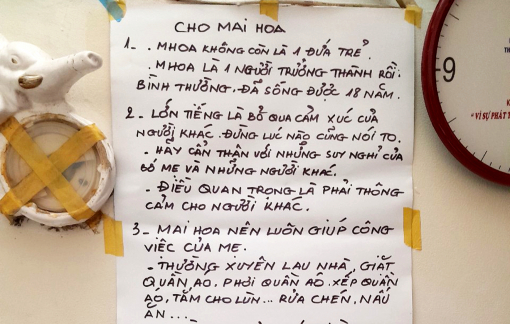 CHO MAI HOA
1_ . MHOA KHÔNG CÒN LÀ 1 ĐỨA TRẺ.
. MHOA LÀ 1 NGƯỜI TRƯỞNG THÀNH RỒI.
BÌNH THƯỜNG. ĐÃ SỐNG ĐƯỢC 18 NĂM.
2_ LỚN TIẾNG LÀ BỎ QUA CẢM XÚC CỦA
NGƯỜI KHÁC. ĐỪNG LÚC NÀO CŨNG NÓI TO.
- HÃY CẨN THẬN VỚI NHỮNG SUY NGHĨ CỦA
BỐ MẸ VÀ NHỮNG NGƯỜI KHÁC.
- ĐIỀU QUAN TRỌNG LÀ PHẢI THÔNG
CẢM CHO NGƯỜI KHÁC.
3_ MAI HOA NÊN LUÔN GIÚP CÔNG
VIỆC CỦA MẸ.
- THƯỜNG XUYÊN LAU NHÀ, GIẶT
QUẦN ÁO, PHƠI QUẦN ÁO. XẾP QUẦN
ÁO, TẮM CHO LÙN... RỬA CHÉN, NẤU
ĂN...
9
"VÌ SỰ PHÁT